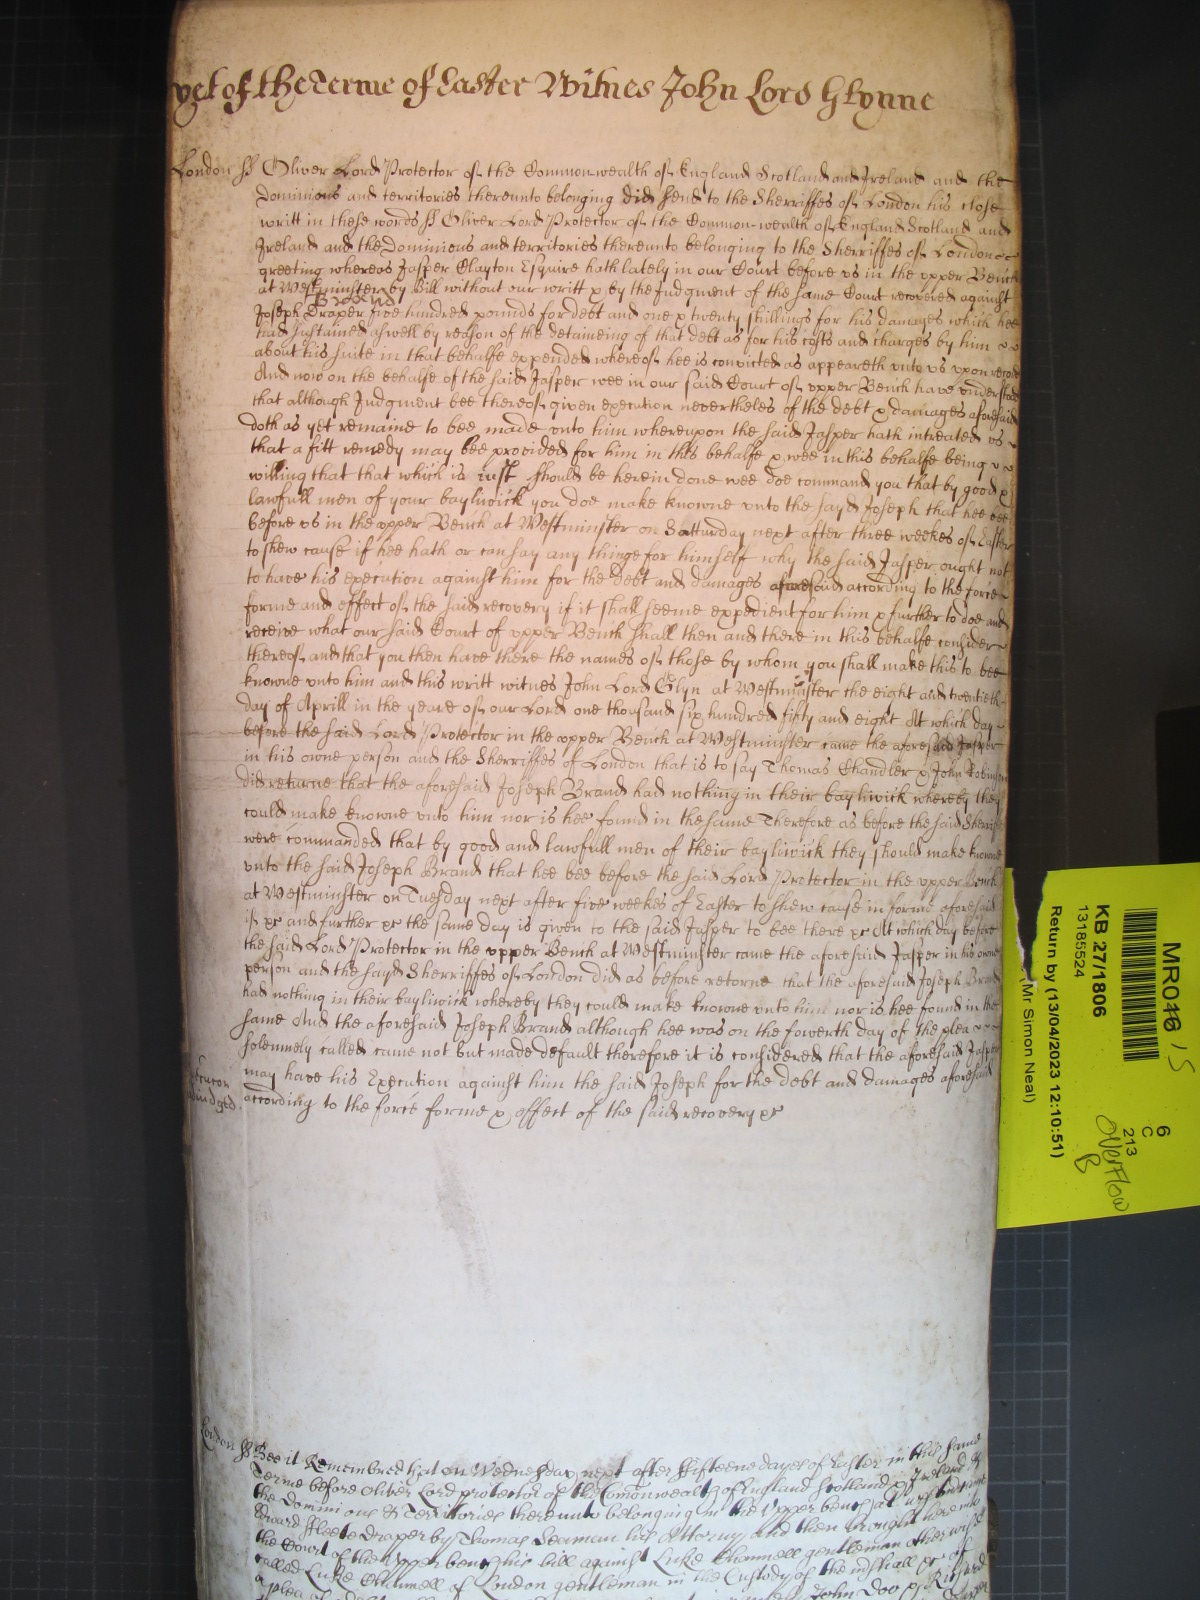 yet of the Terme of Easter Witnes John Lord Glynne
London ss Oliver Lord Protector of the Common-wealth of England Scotland and Ireland and the
Dominions and territories thereunto belonging did send to the Sherriffes of London his close
writt in these words ss Oliver Lord Protector of the Common-wealth of England Scotland and
Ireland and the Dominions and territories thereunto belonging to the Sherriffes of London
greeting whereas Jasper Clayton Esquire hath lately in our Court before us in the upper Bench
at Westminster by Bill without our writt & by the Judgment of the same Court recovered against
Brand
Joseph Draper five hundred pounds for debt and one & twenty shillings for his damages which hee
had sustained aswell by reason of the detaineing of that debt as for his costs and charges by him
about his suite in that behalfe expended whereof hee is convicted as appeareth unto us upon record
And now on the behalfe of the said Jasper wee in our said Court of upper Bench have understood
that although Judgment bee thereof given execution nevertheles of the debt & damages aforesaid
doth as yet remaine to bee made unto him whereupon the said Jasper hath intreated us
that a fitt remedy may bee provided for him in this behalfe & wee in this behalfe being
willing that that which is iust should be herein done wee doe command you that by good &
lawfull men of your bayliwick you doe make knowne unto the sayd Joseph that hee bee
before us in the upper Bench at Westminster on Satturday next after three weekes of Easter
to shew cause if hee hath or can say any thinge for himself why the said Jasper ought not
to have his execution against him for the debt and damages aforesaid according to the force
forme and effect of the said recovery if it shall seeme expedient for him & further to doe and
receive what our said Court of upper Bench shall then and there in this behalfe consider
thereof and that you then have there the names of those by whom you shall make this to bee
knowne unto him and this writt witnes John Lord Glyn at Westminster the eight and twentieth
day of Aprill in the yeare of our Lord one thousand six hundred fifty and eight At which day
before the said Lord Protector in the upper Bench at Westminster came the aforesaid Jasper
in his owne person and the Sherriffes of London that is to say Thomas Chandler & John Robinson
did returne that the aforesaid Joseph Brand had nothing in their bayliwick whereby they
could make knowne unto him nor is hee found in the same Therefore as before the said Sherriffes
were commanded that by good and lawfull men of their bayliwick they should make knowne
unto the said Joseph Brand that hee bee before the said Lord Protector in the upper Bench
at Westminster on Tuesday next after five weekes of Easter to shew cause in forme aforesaid
if &c and further &c the same day is given to the said Jasper to bee there &c At which day before
the said Lord Protector in the upper Bench at Westminster came the aforesaid Jasper in his owne
person and the sayd Sherriffes of London did as before retorne that the aforesaid Joseph Brand
had nothing in their bayliwick whereby they could make knowne unto him nor is hee found in the
same And the aforesaid Joseph Brand although hee was on the fowerth day of the plea
solemnely called came not but made default therefore it is considered that the aforesaid Jasper
may have his Execution against him the said Joseph for the debt and damages aforesaid
according to the force forme & effect of the said recovery &c
London ss Bee it Remembred that on Wednesday next after ffifteene dayes of Easter in this same
Terme before Oliver Lord protector of the Comonwealth of England Scotland & Ireland &
the Dominions & Territories thereunto belonging in the Upper bench att
Edward ffleete draper by Thomas Seaman his Attorny And then brought here into
the Court of the Upper bench his bill against Luke Channell gentleman otherwise
called Luke Channell of London gentleman in the Custody of the &c of
a plea John Doo & Richard
MR046 15
KB 27/1806
13185524
Return by (13/04/2023 12:10:51)
(Mr Simon Neal)
6
C
213
Overflow
B